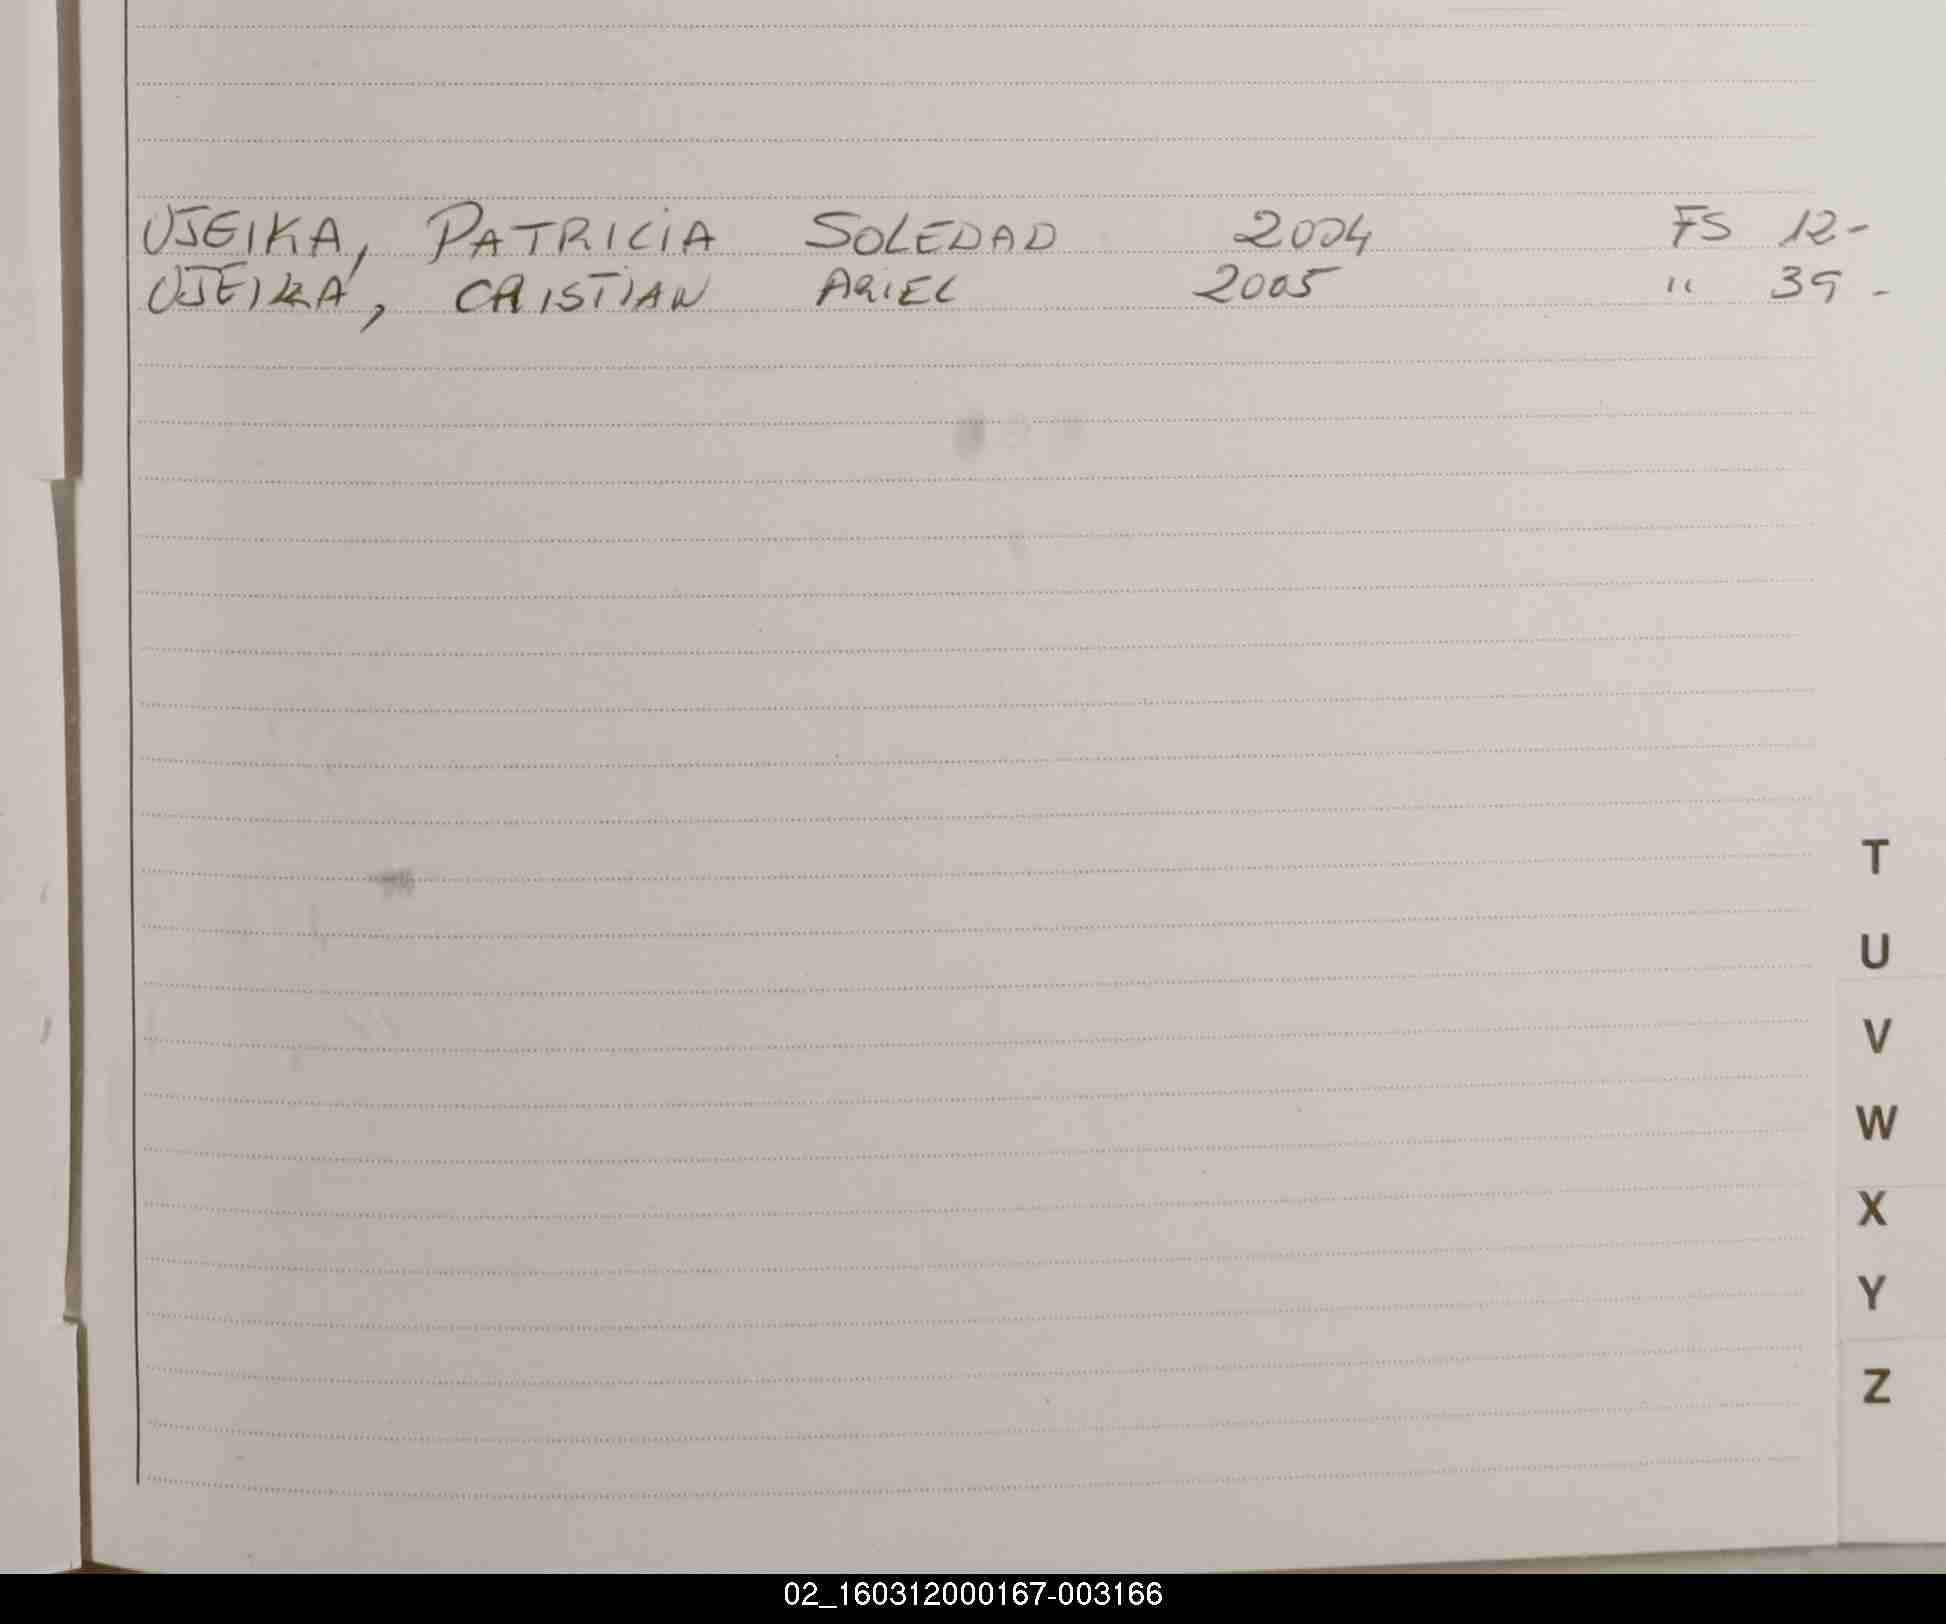 UJEIKA, PATRICIA SOLEDAD 2004 FS 12-
UJEIKA, CRISTIAN ARIEL 2005 " 39 -
T
U
V
W
X
Y
Z
02_160312000167-003166